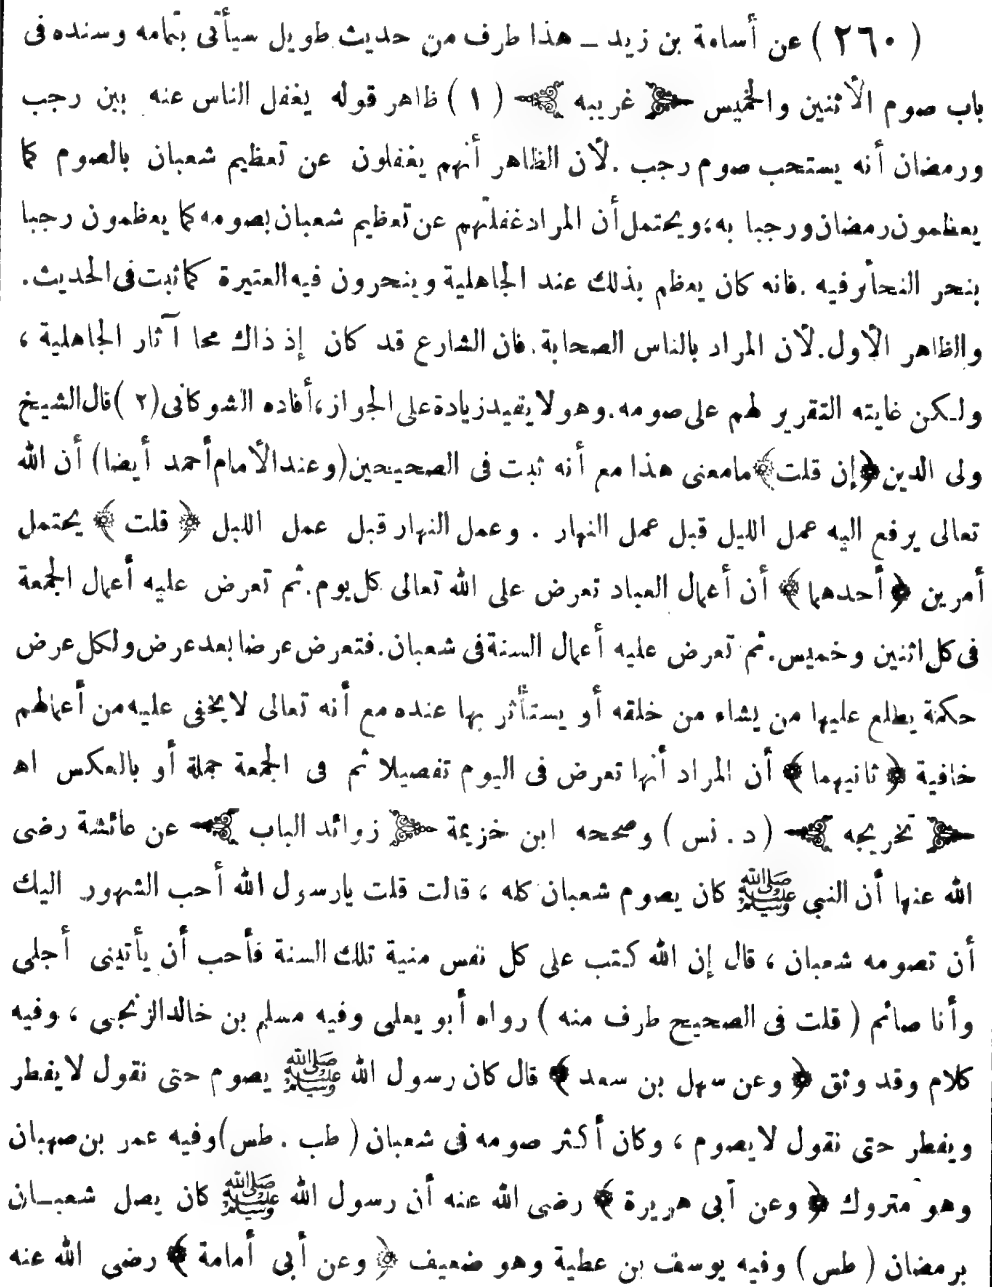 ( ٢٦٠ ) عن أسامة بن زيد ــ هذا طرف من حديث طويل سيأتى بتمامه وسنده فى
باب صوم الأثنين والخميس غريبه ( ١ ) ظاهر قوله يغفل الناس عنه بين رجب
ورمضان أنه يستحب صوم رجب . لأن الظاهر أنهم يغفلون عن تعظيم شعبان بالصوم كما
يعظمون رمضان ورجبا به ، ويحتمل أن المراد غفلتهم عن تعظيم شعبان بصومه كما يعظمون رجبا
بنحر النحائر فيه . فانه كان يعظم بذلك عند الجاهلية وينحرون فيه العتيرة كما ثبت فى الحديث .
والظاهر الأول . لأن المراد بالناس الصحابة . فان الشارع قد كان إذ ذاك محا آثار الجاهلية ،
ولكن غايته التقرير لهم على صومه . وهو لا يفيد زيادة على الجواز ، أفاده الشوكانى ( ٢ ) قال الشيخ
ولى الدين ﴿إن قلت﴾ مامعنى هذا مع أنه ثبت فى الصحيحين (وعند الأمام أحمد أيضا) أن الله
تعالى يرفع اليه عمل الليل قبل عمل النهار . وعمل النهار قبل عمل الليل ﴿ قلت ﴾ يحتمل
أمرين ﴿ أحدهما ﴾ أن أعمال العباد تعرض على الله تعالى كل يوم . ثم تعرض عليه أعمال الجمعة
فى كل اثنين وخميس . ثم تعرض عليه أعمال السنة فى شعبان . فتعرض عرضا بعد عرض ولكل عرض
حكمة يطلع عليها من يشاء من خلقه أو يستأثر بها عنده مع أنه تعالى لا يخفى عليه من أعمالهم
خافية ﴿ ثانيهما ﴾ أن المراد أنها تعرض فى اليوم تفصيلا ثم فى الجمعة جملة أو بالعكس اهـ
تخريجه ( د . نس ) وصححه ابن خزيمة زوائد الباب عن عائشة رضى
الله عنها أن النبى ﷺ كان يصوم شعبان كله ، قالت قلت يارسول الله أحب الشهور اليك
أن تصومه شعبان ، قال إن الله كتب على كل نفس منية تلك السنة فأحب أن يأتينى أجلى
وأنا صائم ( قلت فى الصحيح طرف منه ) رواه أبو يعلى وفيه مسلم بن خالد الزنجى ، وفيه
كلام وقد وثق ﴿ وعن سهل بن سعد ﴾ قال كان رسول الله ﷺ يصوم حتى نقول لا يفطر
ويفطر حتى نقول لا يصوم ، وكان أكثر صومه فى شعبان ( طب . طس ) وفيه عمر بن صهبان
وهو متروك ﴿ وعن أبى هريرة ﴾ رضى الله عنه أن رسول الله ﷺ كان يصل شعبــان
برمضان ( طس ) وفيه يوسف بن عطية وهو ضعيف ﴿ وعن أبى أمامة ﴾ رضى الله عنه